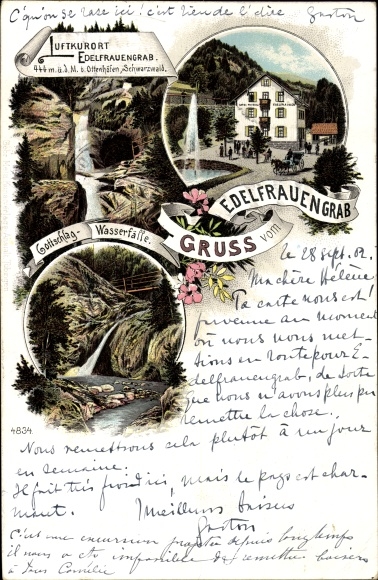 C'qu'on se rase ici ! c'est rien de l'dire Gaston
LUFTKURORT
EDELFRAUENGRAB.
444 m. ü. d. M. b. Ottenhöfen, Schwarzwald.
EDELFRAUENGRAB
GRUSS vom
Gottschläg - Wasserfälle.
le 28 sept. 02.
Ma chère Hélène
Ta carte nous est
parvenue au moment
où nous nous met-
tions en route pour E-
delfrauengrab, de sorte
que nous n'avons plus pu
remettre la chose.
4834.
Nous remettrons cela plutôt à un jour
en semaine.
Il fait très froid ici, mais le pays est char-
mant. Meilleurs baisers
Gaston
C'est une excursion projetée depuis longtemps
il nous a été impossible de remettre baisers
à tous